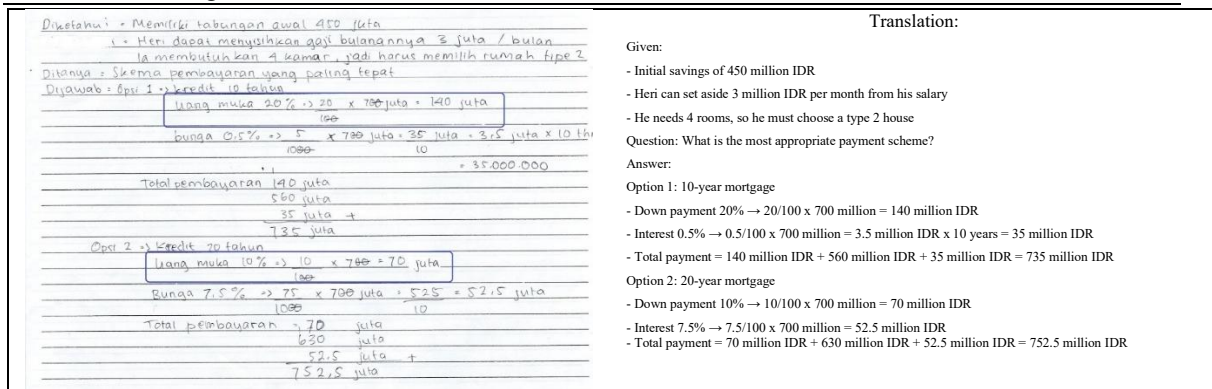 Diketahui : - Memiliki tabungan awal 450 juta
- Heri dapat menyisihkan gaji bulanannya 3 juta / bulan
Ia membutuhkan 4 kamar, jadi harus memilih rumah tipe 2
Ditanya = Skema pembayaran yang paling tepat
Dijawab = Opsi 1 => kredit 10 tahun
Uang muka 20% => 20/100 x 700 juta = 140 juta
bunga 0.5% => 5/1000 x 700 juta = 35/10 juta = 3,5 juta x 10 th
= 35.000.000
Total pembayaran 140 juta
560 juta
35 juta +
735 juta
Opsi 2 => kredit 20 tahun
Uang muka 10% => 10/100 x 700 = 70 juta
Bunga 7,5% => 75/1000 x 700 juta = 525/10 = 52,5 juta
Total pembayaran = 70 juta
630 juta
52.5 juta +
752,5 juta
Translation:
Given:
- Initial savings of 450 million IDR
- Heri can set aside 3 million IDR per month from his salary
- He needs 4 rooms, so he must choose a type 2 house
Question: What is the most appropriate payment scheme?
Answer:
Option 1: 10-year mortgage
- Down payment 20% → 20/100 x 700 million = 140 million IDR
- Interest 0.5% → 0.5/100 x 700 million = 3.5 million IDR x 10 years = 35 million IDR
- Total payment = 140 million IDR + 560 million IDR + 35 million IDR = 735 million IDR
Option 2: 20-year mortgage
- Down payment 10% → 10/100 x 700 million = 70 million IDR
- Interest 7.5% → 7.5/100 x 700 million = 52.5 million IDR
- Total payment = 70 million IDR + 630 million IDR + 52.5 million IDR = 752.5 million IDR